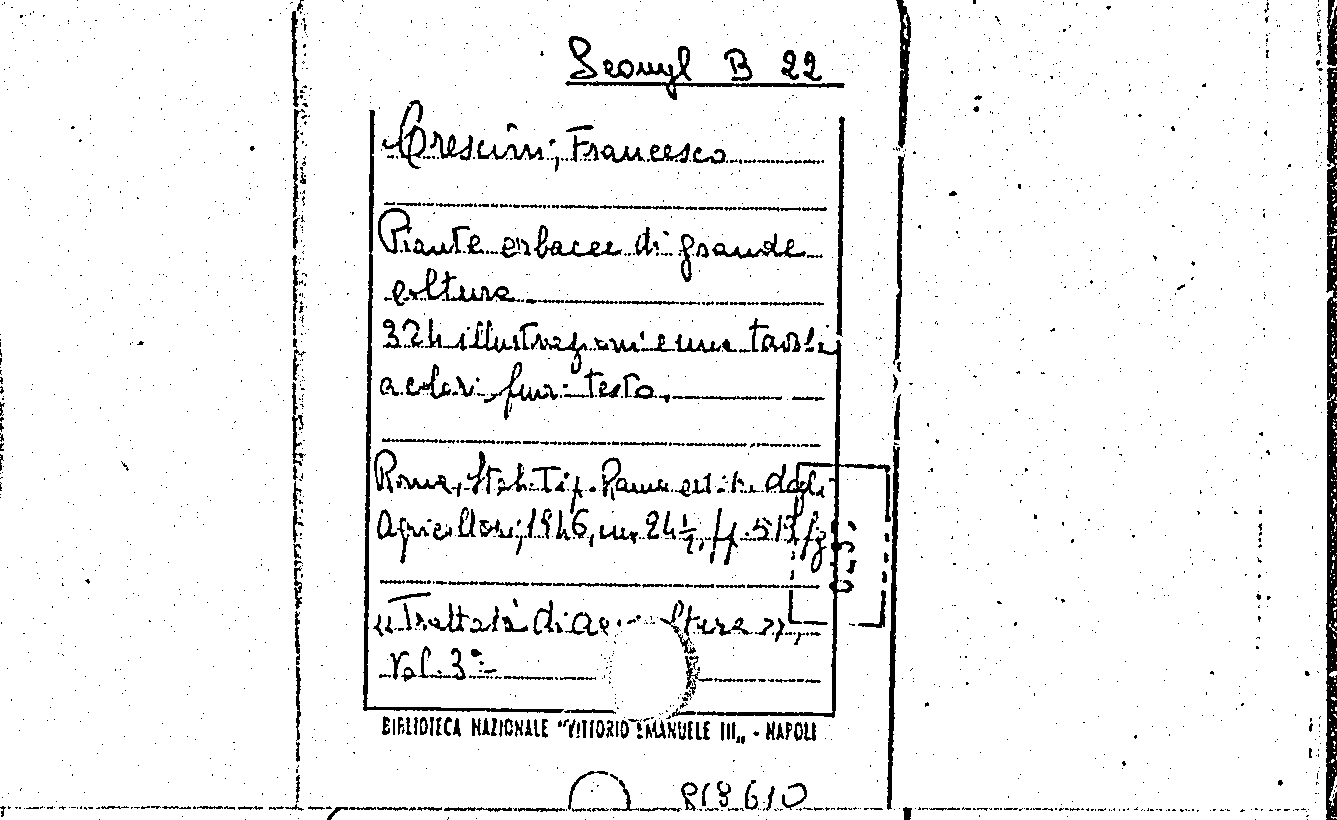 B 22
Crescini, Francesco
Piante erbacee di grande
coltura.
324 illustrazioni e una tavoli
a colori fuori testo.
Roma, Stab. Tip. Ramo edit. degli
Agricoltori, 1946, in 24½, pp. 513, fg
«Trattato di agricoltura»,
Vol. 3º
BIBLIOTECA NAZIONALE "VITTORIO EMANUELE III„ - NAPOLI
819610